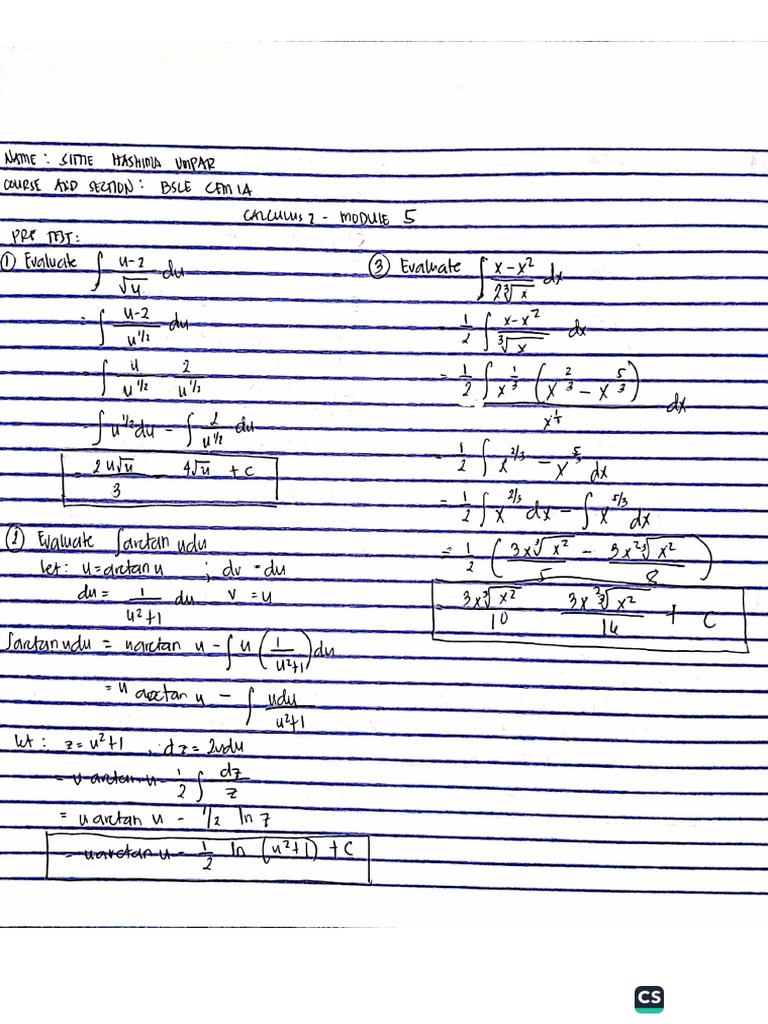 NAME: SITTIE HASHIMA UMPAR
COURSE AND SECTION: BSCE CEM 1A
CALCULUS 2 - MODULE 5
PRE TEST:
① Evaluate ∫ (u-2)/√u du
= ∫ (u-2)/u^(1/2) du
= ∫ u/u^(1/2) 2/u^(1/2)
= ∫ u^(1/2) du - ∫ 2/u^(1/2) du
= 2u√u/3 4√u + C
② Evaluate ∫ arctan u du
let: u = arctan u ; dv = du
du = 1/(u²+1) du v = u
∫ arctan u du = u arctan u - ∫ u (1/(u²+1)) du
= u arctan u - ∫ u du/(u²+1)
let: z = u²+1 , dz = 2u du
= u arctan u - 1/2 ∫ dz/z
= u arctan u - 1/2 ln z
= u arctan u - 1/2 ln (u²+1) + C
③ Evaluate ∫ (x-x²)/(2∛x) dx
= 1/2 ∫ (x-x²)/∛x dx
= 1/2 ∫ x^(1/3) (x^(2/3) - x^(5/3))/x^(1/3) dx
= 1/2 ∫ x^(2/3) - x^(5/3) dx
= 1/2 ∫ x^(2/3) dx - ∫ x^(5/3) dx
= 1/2 (3x∛x²/5 - 3x²∛x²/8)
= 3x∛x²/10 3x²∛x²/16 + C
CS